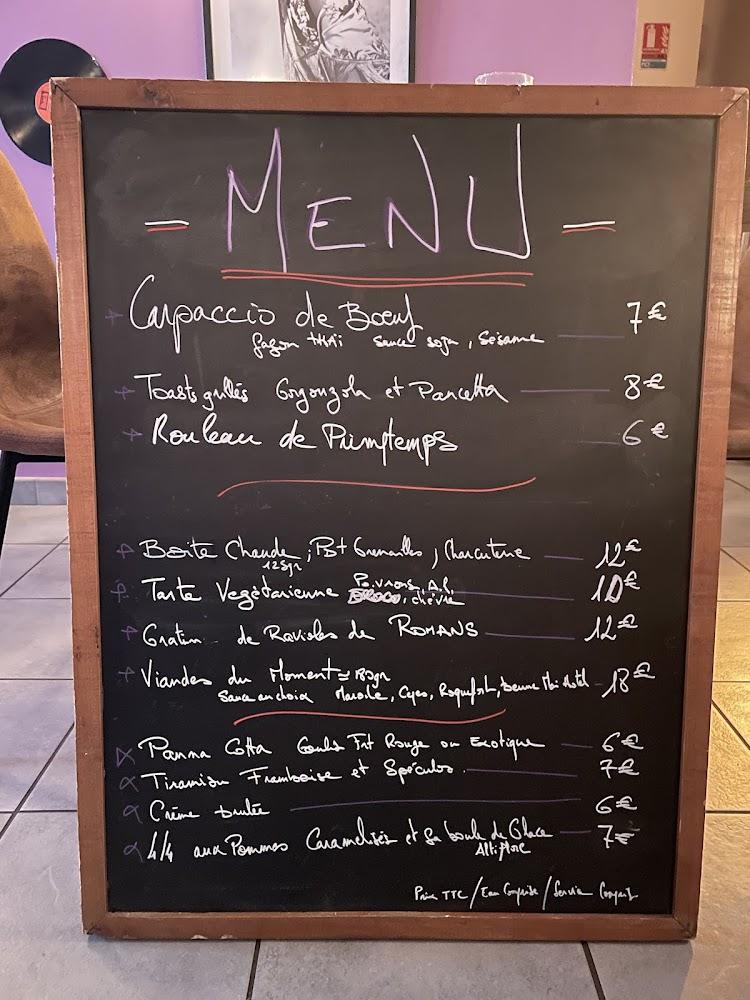 MENU
Carpaccio de Bœuf 7€
façon thaï sauce soja, Sésame
Toasts grillés Gorgonzola et Pancetta 8€
Rouleau de Printemps 6€
Boite Chaude, Pdt Grenailles, Charcuterie 12€
125gr
Poivrons, Ail,
Tarte Vegètarienne , chèvre 10€
Gratin de Ravioles de ROMANS 12€
Viandes du Moment ≃ 180gr 18€
Sauce au choix Maroilles, Cepes, Roquefort, beurre Mai Hotel
Panna Cotta Coulis Frt Rouge ou Exotique 6€
Tiramisu Framboise et Spéculos. 7€
Crème brulée 6€
4/4 aux Pommes Caramelisés et sa boule de Glace 7€
Prix TTC / Eau Comprise / Service Compris